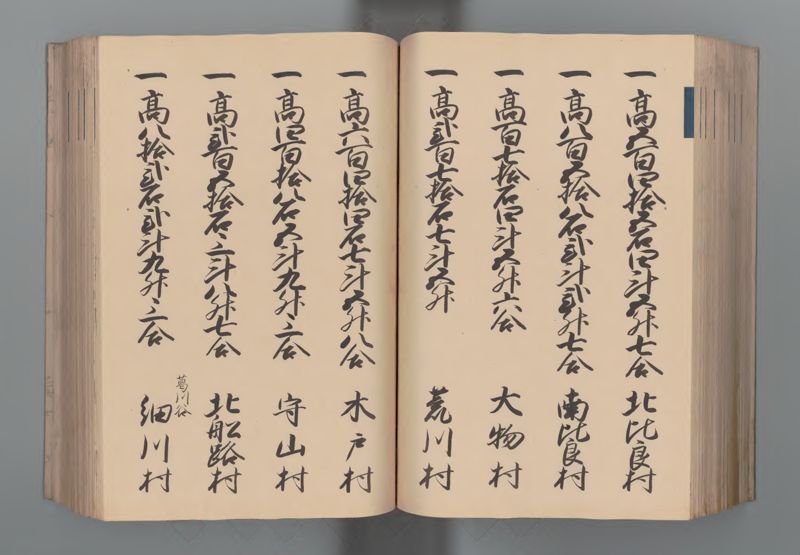 一高五百四拾五石四斗五升七合 北比良村
一高八百五拾八石弐斗弐升七合 南比良村
一高百七拾石四斗五升六合 大物村
一高弐百七拾石七斗五升 荒川村
一高六百四拾四石七斗五升八合 木戸村
一高四百拾八石五斗九升三合 守山村
一高弐百五拾石三斗八升七合 北船路村
葛川谷
一高八拾弐石弐斗九升三合 細川村